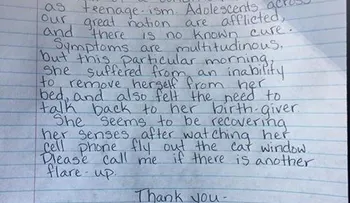 as teenage-ism. Adolescents across
our great nation are afflicted,
and there is no known cure.
Symptoms are multitudinous,
but this particular morning,
she suffered from an inability
to remove herself from her
bed, and also felt the need to
talk back to her birth-giver.
She seems to be recovering
her senses after watching her
cell phone fly out the car window.
Please call me if there is another
flare-up.
Thank you-